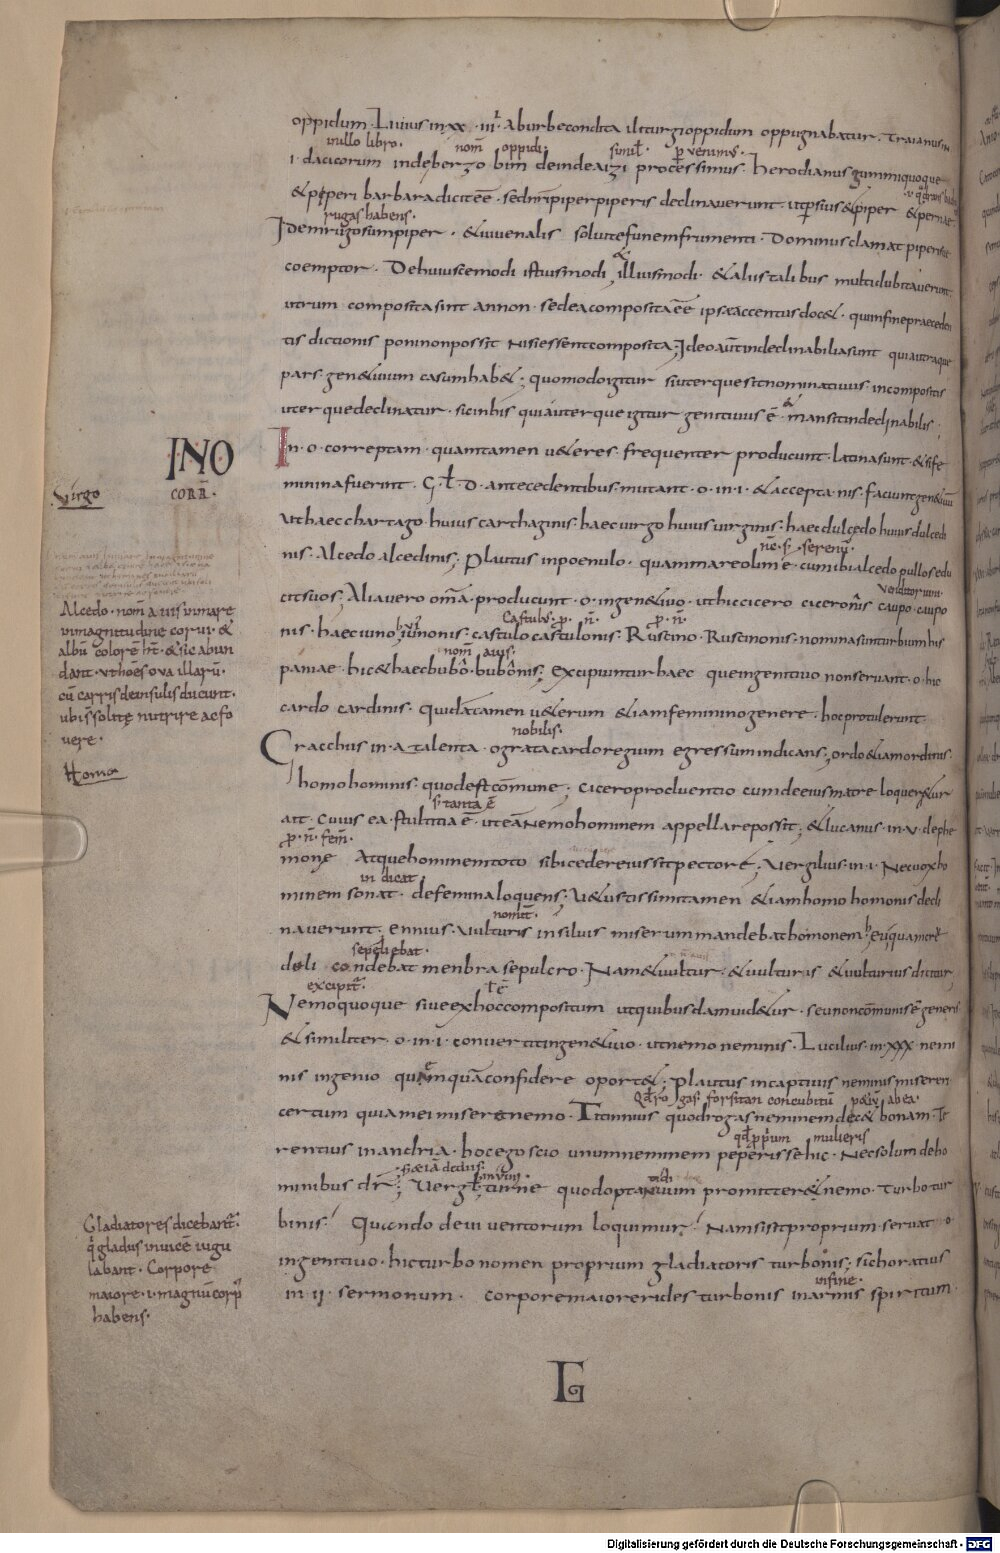 oppidum. Liuius in xx .iii. Ab urbe condita iliturgi oppidum oppugnabatur. Traianus in
nullo libro. nom̅ oppidi simil̅. ꝑ uenimus.
i. dacicorum inde berzobim deinde aizi processimus. herodianus gummi quoque
& piperi barbara dicit e̅e̅. sed nr̅i piper piperis declinauerunt. ut ꝑsius & piper & pernae
rugas habens.
Idem rugosum piper. & iuuenalis soluite funem frumenti dominus clamat piperisque
coemptor. De huiuscemodi istiusmodi illiusmodi & aliis talibus multi dubitauerunt
utrum composita sint an non. sed ea composita e̅e̅ ipse accentus doc&. qui in fine praeceden
tis dictionis poni non possit nisi essent composita; Ideo aut̅ indeclinabilia sunt quia utraque
pars gen&iuum casum hab&; quomodo igitur si uterque sit nominatiuus in compositis
uterque declinatur. sic in his quia uterque igitur genitiuus e̅ mansit indeclinabilis.
INO
CORR̅.
In .o. correptam. quam tamen u&eres frequenter producunt. latina sunt. & si fe
minina fuerint .G. t̅ .D. antecedentibus. mutant .o. in .i. & accepta nis. faciunt gen&iuu̅
Virgo
ut haec chartago huius carthaginis. haec uirgo huius uirginis. haec dulcedo huius dulcedi
nis. Alcedo alcedinis; Plautus in poenulo. quam mare olim e̅ cum ibi alcedo pullos edu
cit suos; Alia uero om̅a producunt .o. in gen&iuo. ut hic cicero ciceronis caupo caupo
uenditor uini.
nis. haec iuno iunonis. castulo castulonis. Ruscino. Ruscinonis. nomina sunt urbium his
nom̅ auis.
paniae. hic & haec bubo. bubonis; Excipiuntur haec quae in gen&iuo non seruant .o. hic
cardo cardinis. quida̅ tamen u&erum &iam feminino genere hoc protulerunt
nobilis.
Gracchus in atalanta. o grata cardo regium egressum indicans; ordo &iam ordinis.
homo hominis. quod est com̅une; Cicero pro cluentio cum de eius matre loquer&ur
s. tanta e̅
ait. Cuius ea stultitia e̅. ut ea̅ nemo hominem appellare possit; & lucanus in .v. de phe
ꝓ. n̅. fem̅.
monoe Atque hominem toto sibi cedere iussit pectore; Vergilius in .i. Nec uox ho
indicat
minem sonat. de femina loquens; V&ustissimi tamen &iam homo homonis decli
nauerunt; ennius. Vulturis in siluis miserum mandebat homonem
sepeliebat.
condebat membra sepulcro. Nam & uultur & uulturis & uulturius dicitur;
Nemo quoque siue ex hoc compositum ut quibusdam uid&ur. seu non com̅unis e̅ generis
& similiter .o. in .i. conuertit in gen&iuo. ut nemo neminis. Lucilius in .xxx. nemi
nis ingenio quemqua̅ confidere oport&; Plautus in captiuis neminis miseren
certum quia mei miser& nemo. Titinnius quod rogas neminem dec& bonam. Te
rentius in andria. hoc ego scio unum neminem peperisse hic. Nec solum de ho
minibus dr̅; Verg̅. turne quod optanti diuum promitter& nemo. Turbo tur
binis. Quando de ui uentorum loquimur. Nam si sit proprium. seruat .o.
in gen&iuo. hic turbo nomen proprium gladiatoris turbonis; sic horatius
in .ii. sermonum. corpore maiorem rides turbonis in armis spiritum.
Alcedo. nom̅ auis in mare
in magnitudine corui. &
albu̅ colore̅ h̅t. & sic abun
dant. ut ho̅es oua illaru̅.
cu̅ carris de insulis ducunt.
ubi solite nutrire ac fo
uere.
Homo
Gladiatores dicebant̅.
ꝗ gladiis inuice̅ iugu
labant. Corpore
maiore .i. magnu̅ corp̅
habens.
LG
Digitalisierung gefördert durch die Deutsche Forschungsgemeinschaft - DFG